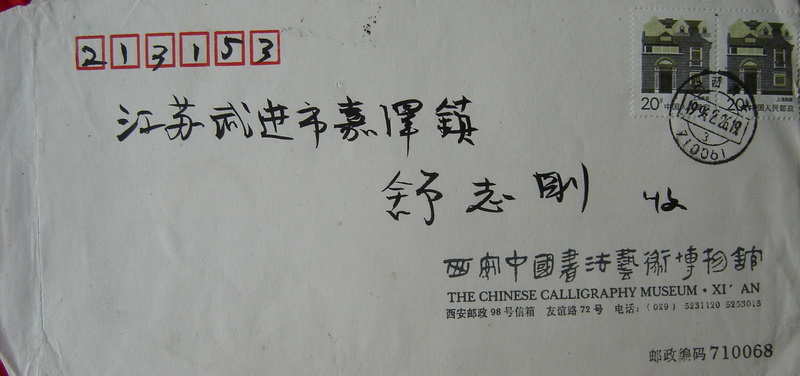 213153
20分 中国人民邮政
20分 中国人民邮政
上海民居
710061
江苏武进市嘉泽鎮
舒志剛 收
西安中國書法藝術博物館
THE CHINESE CALLIGRAPHY MUSEUM · XI' AN
西安邮政98号信箱 友谊路72号 电话:(029) 5231120 5253015
邮政编码 710068